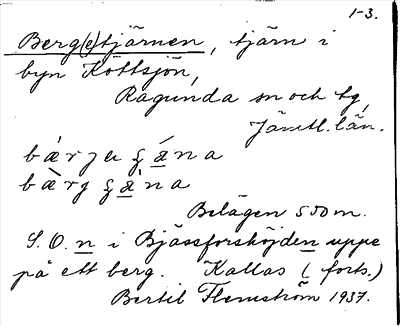 1-3.
Berg(e)tjärnen, tjärn i
byn Köttsjön,
Ragunda sn och tg,
Jämtl. län.
bärg ȩ n a
bærg n a
Belägen 550 m.
S. O. n i Bjässforshöjden uppe
på ett berg. Kallas (forts.)
Bertil Flemström 1937.